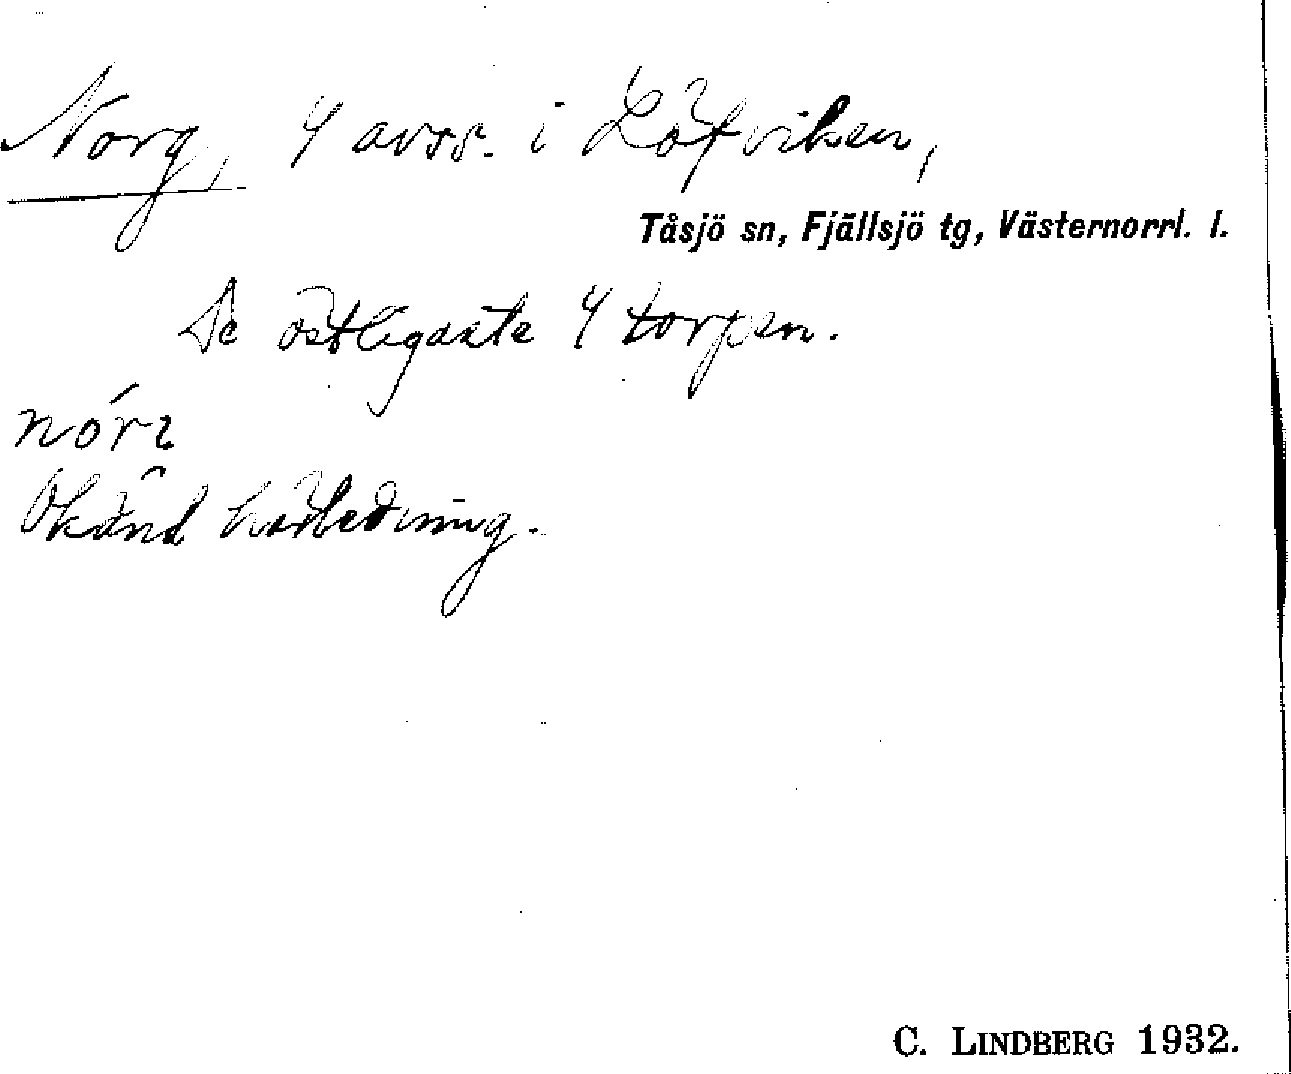 Norg, 4 avss. i Löfviken,
Tåsjö sn, Fjällsjö tg, Västernorrl. l.
De östligaste 4 torpen.
nórz
Okänd härledning.
C. LINDBERG 1932.